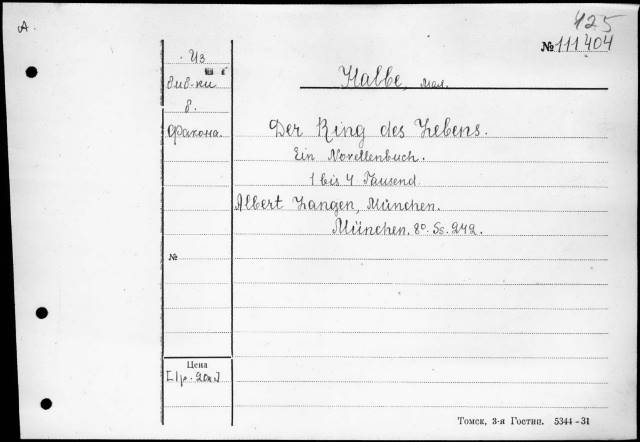 A.
125
№ 111404
Из
библ-ки
в.
Факона.
Halbe, Max.
Der Ring des Lebens.
Ein Novellenbuch.
1 bis 4 Tausend
Albert Langen, München.
München, 8º. Ss. 242.
№
Цена
[1р. 20к]
Томск, 3-я Гостип. 5344-31